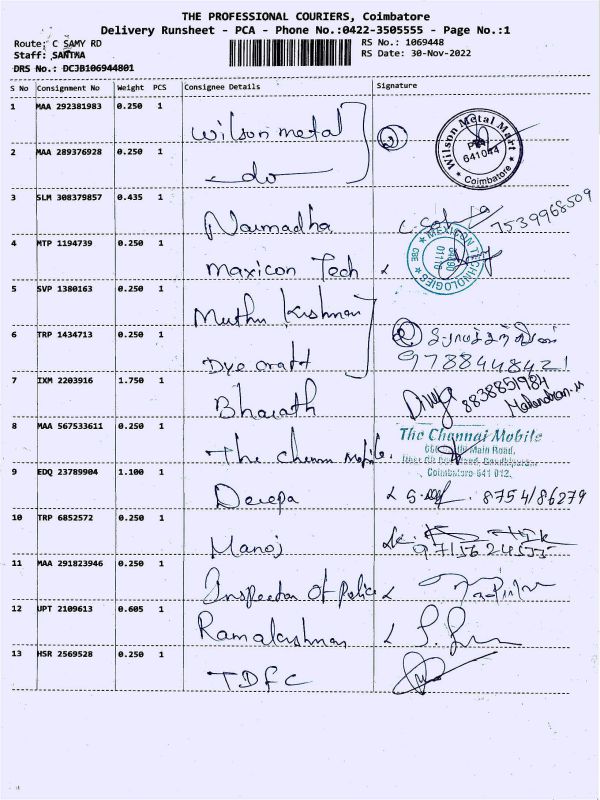 THE PROFESSIONAL COURIERS, Coimbatore
Delivery Runsheet - PCA - Phone No.:0422-3505555 - Page No.:1
Route: C SAMY RD
RS No.: 1069448
Staff: SANTHA
RS Date: 30-Nov-2022
DRS No.: DCJB106944801
S No Consignment No Weight PCS Consignee Details Signature
1 MAA 292381983 0.250 1 Wilson metal 2
Wilson Metal Mart
641044
Coimbatore
2 MAA 289376928 0.250 1 do
3 SLM 308379857 0.435 1 Narmadha 7539968509
4 MTP 1194739 0.250 1 Maxicon Tech
MEXICON TECHNOLOGIES
CBE
5 SVP 1380163 0.250 1 Muthu Krishnan
6 TRP 1434713 0.250 1 Dye craft 2
9788448421
7 IXM 2203916 1.750 1 Bharath 8838851984
8 MAA 567533611 0.250 1 The Chennai Mobile
The Chennai Mobile
Main Road,
Coimbatore 641 012.
9 EDQ 23789904 1.100 1 Deepa 8754186279
10 TRP 6852572 0.250 1 Manoj
11 MAA 291823946 0.250 1 Inspector of Police
12 UPT 2109613 0.605 1 Ramakrishnan
13 HSR 2569528 0.250 1 TDFC